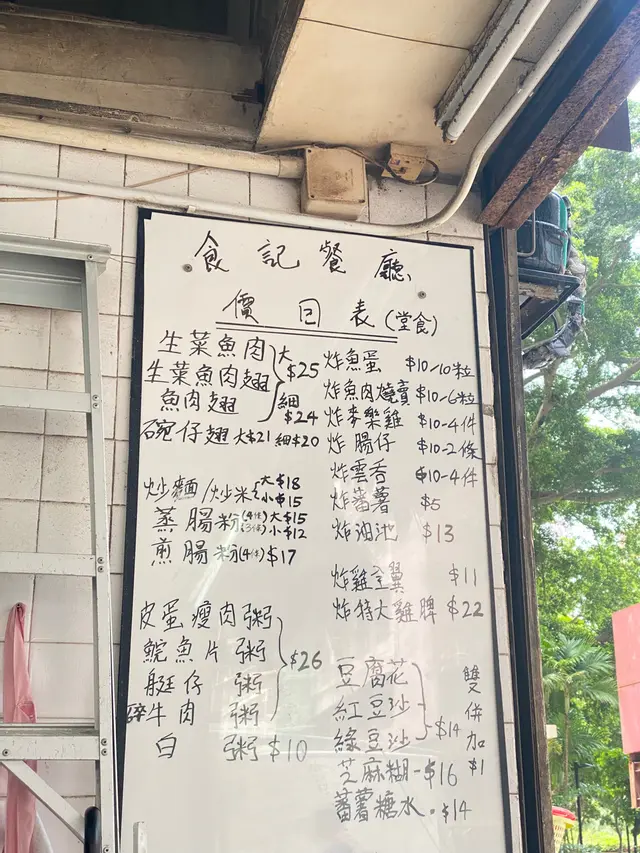 食記餐廳
價目表(堂食)
生菜魚肉
生菜魚肉翅
魚肉翅
大$25
細$24
碗仔翅 大$21 細$20
炒麵/炒米 大$18 小$15
蒸腸粉 (4條)大$15 (3條)小$12
煎腸粉(4條)$17
皮蛋瘦肉粥
鯇魚片粥
艇仔粥
碎牛肉粥
$26
白粥 $10
炸魚蛋 $10-10粒
炸魚肉燒賣 $10-6粒
炸麥樂雞 $10-4件
炸腸仔 $10-2條
炸雲吞 $10-4件
炸蕃薯 $5
炸油池 $13
炸雞全翼 $11
炸特大雞脾 $22
豆腐花
紅豆沙
綠豆沙
$14
芝麻糊-$16
蕃薯糖水.$14
雙併加$1